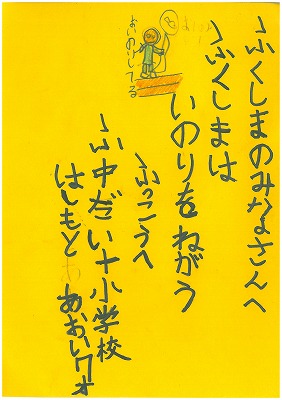 ふくしまのみなさんへ
ふくしまは
いのりをねがう
ふっこうへ
おいのりしてる
ふ中だい十小学校
はしもと あおい7才